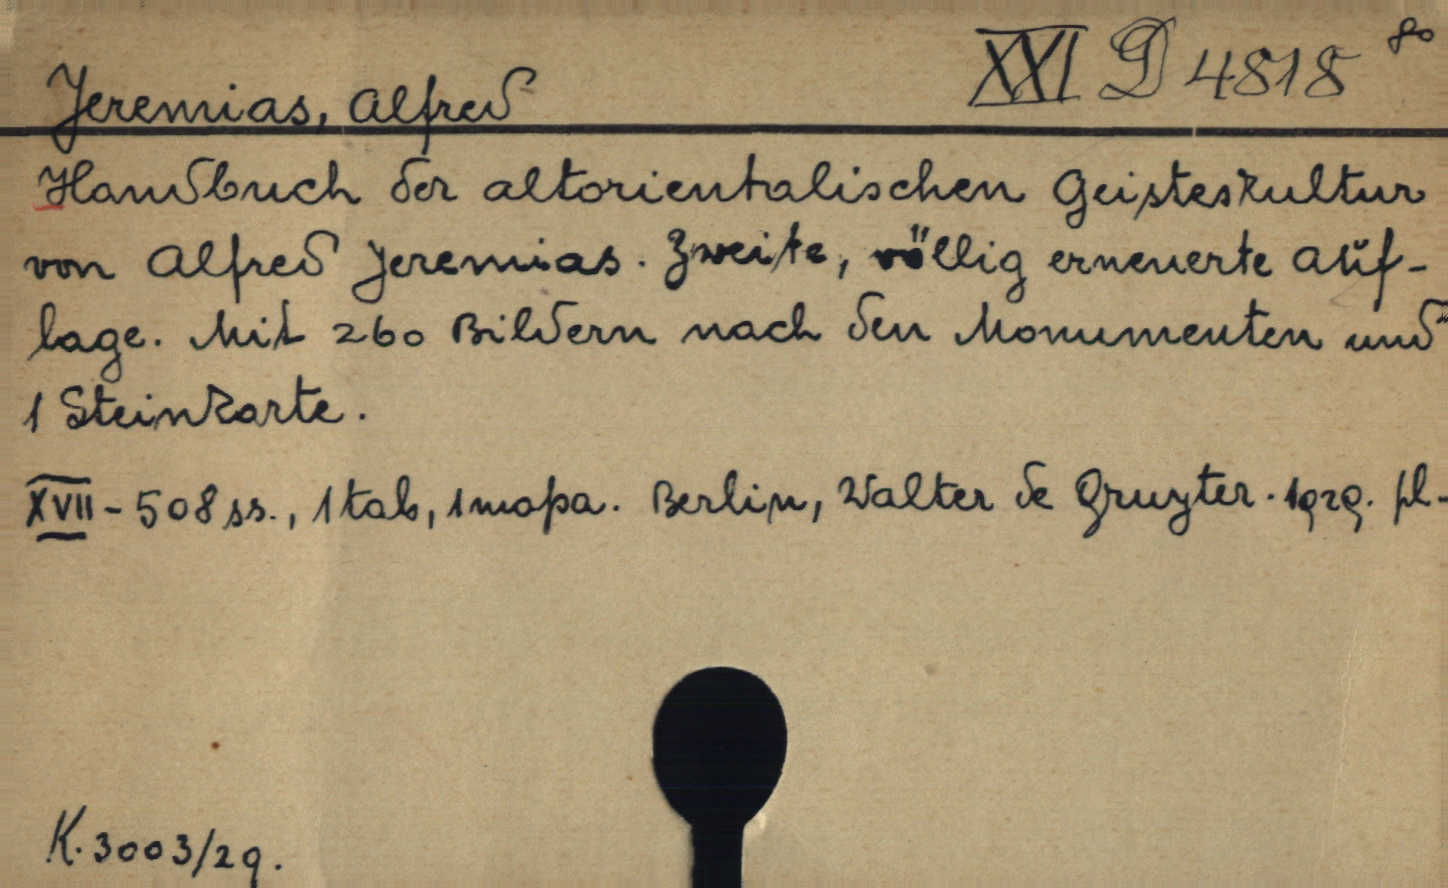 XXI D 4818 8o
Jeremias, Alfred
Handbuch der altorientalischen Geisteskultur
von Alfred Jeremias. Zweite, völlig erneuerte Auf-
lage. Mit 260 Bildern nach den Monumenten und
1 Steinkarte.
XVII - 508 ss., 1 tab, 1 mapa. Berlin, Walter de Gruyter. 1929. pl-
K. 3003/29.